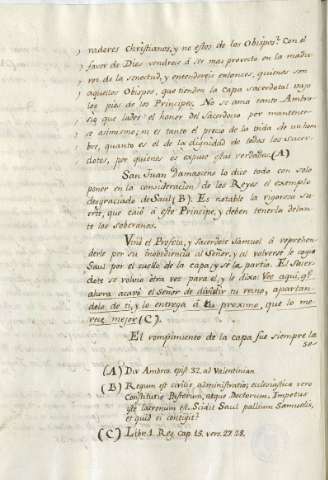 , radores Christianos, y no estos de los Obispos. Con el
, favor de Dios vendras á ser mas provecto en la madu
, rez de la senectud, y entenderás entonces, quienes son
, aquellos Obispos, que tienden la Capa sacerdotal bajo
, los pies de los Principes. No se ama tanto Ambro
, sio que lades el honor del Sacerdocio por mantener
, se asimismo; ni es tanto el precio de la vida de un hom
, bre, quanto es el de la dignidad de todos los Sacer
, dotes, por quienes os expuse estas verdades. (A)
San Juan Damasceno lo dice todo con solo
poner en la consideracion de los Reyes el exemplo
desgraciado de Saul (B). Es notable la rigorosa su
erte, que caió á este Principe, y deben tenerla delan
te los soberanos.
Vino el Profeta, y Sacerdote Samuel á reprehen
derle por su inobidiencia al Señor, y al volverse le cogió
Saul por el cuello de la capa, y se la partió. El Sacer
dote se volvió otra vez para el, y le dixo: Ves aqui, que
ahora acavó el Señor de dividir tu reino, apartan
dolo de ti, y lo entrega á tu proximo, que lo me
rece mejor (C).
El rompimiento de la capa fue siempre la
se-
(A) Div. Ambro. epist. 32. al Valentinian.
(B) Regum est civilis administratio; ecclesiastica vero
Constitutio Pastorum, atque Doctorum. Impetus
iste lacrenum est. Scidit Saul pallium Samuelis,
et quid ei contigit?
(C) Libr. 1. Reg. cap. 15. vers. 27. 28.